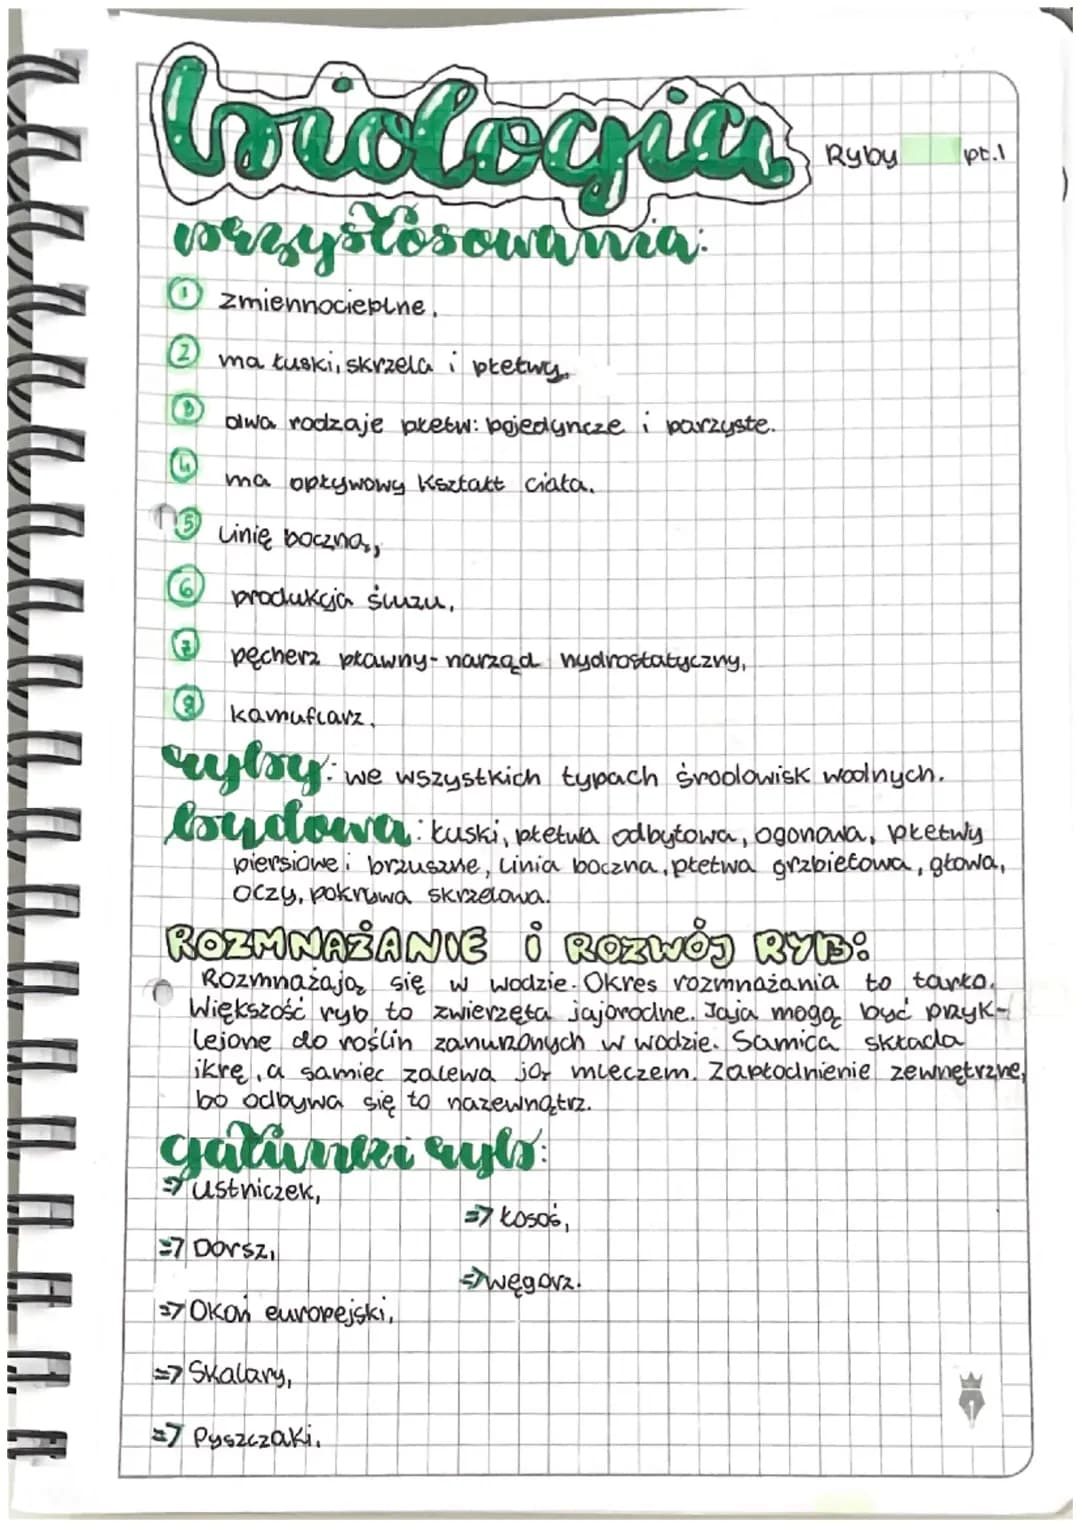 biologia
Ryby pt.1
przystosowania:
1 zmiennocieplne,
2 ma łuski, skrzela i płetwy,
3 dwa rodzaje płetw: pojedyncze i parzyste.
4 ma opływowy kształt ciała,
5 Linię boczną,
6 produkcja śluzu,
7 pęcherz pławny- narząd hydrostatyczny,
8 kamuflarz.
ryby: we wszystkich typach środowisk wodnych.
budowa: łuski, płetwa odbytowa, ogonowa, płetwy
piersiowe i brzuszne, Linia boczna, płetwa grzbietowa, głowa,
oczy, pokrywa skrzelowa.
ROZMNAŻANIE i ROZWÓJ RYB:
Rozmnażają się w wodzie. Okres rozmnażania to tarło.
Większość ryb to zwierzęta jajorodne. Jaja mogą być przyk-
lejone do roślin zanurzonych w wodzie. Samica składa
ikrę, a samiec zalewa ją mleczem. Zapłodnienie zewnętrzne,
bo odbywa się to nazewnątrz.
gatunki ryb:
=> Ustniczek,
=> Łosoś,
=> Dorsz,
=> węgorz.
=> Okoń europejski,
=> Skalary,
=> Pyszczaki.